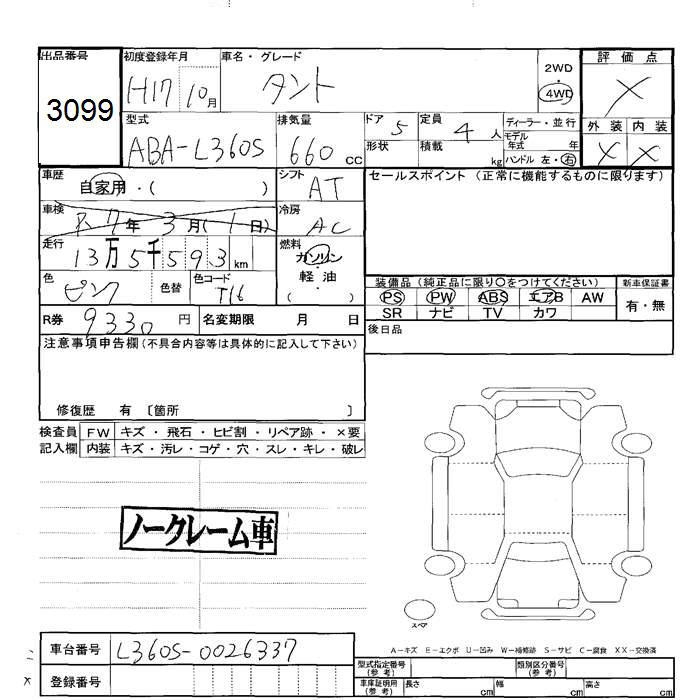 出品番号
3099
初度登録年月
H17 10月
車名・グレード
タント
2WD
・
4WD
評価点
X
外装 内装
X X
型式
ABA-L360S
排気量
660 cc
ドア 5
形状
定員 4 人
積載 kg
ディーラー・並行
モデル
年式 年
ハンドル 左・右
車歴
自家用・( )
シフト
AT
セールスポイント (正常に機能するものに限ります)
車検
R7年3月(1日)
冷房
AC
走行
13万5千593km
燃料
ガソリン
軽・油
( )
色
ピンク
色替
色コード
T16
装備品(純正品に限り〇をつけてください)
PS PW ABS エアB AW
SR ナビ TV カワ
新車保証書
有・無
R券 9330円
名変期限 月 日
後日品
注意事項申告欄(不具合内容等は具体的に記入して下さい)
修復歴 有 〔箇所 〕
検査員
記入欄
FW キズ・飛石・ヒビ割・リペア跡・×要
内装 キズ・汚レ・コゲ・穴・スレ・キレ・破レ
ノークレーム車
スペア
A-キズ E-エクボ U-凹み W-補修跡 S-サビ C-腐食 XX-交換済
車台番号 L360S-0026337
登録番号
型式指定番号
(参考)
類別区分番号
(参考)
車庫証明用
(参考)
長さ cm 幅 cm 高さ cm